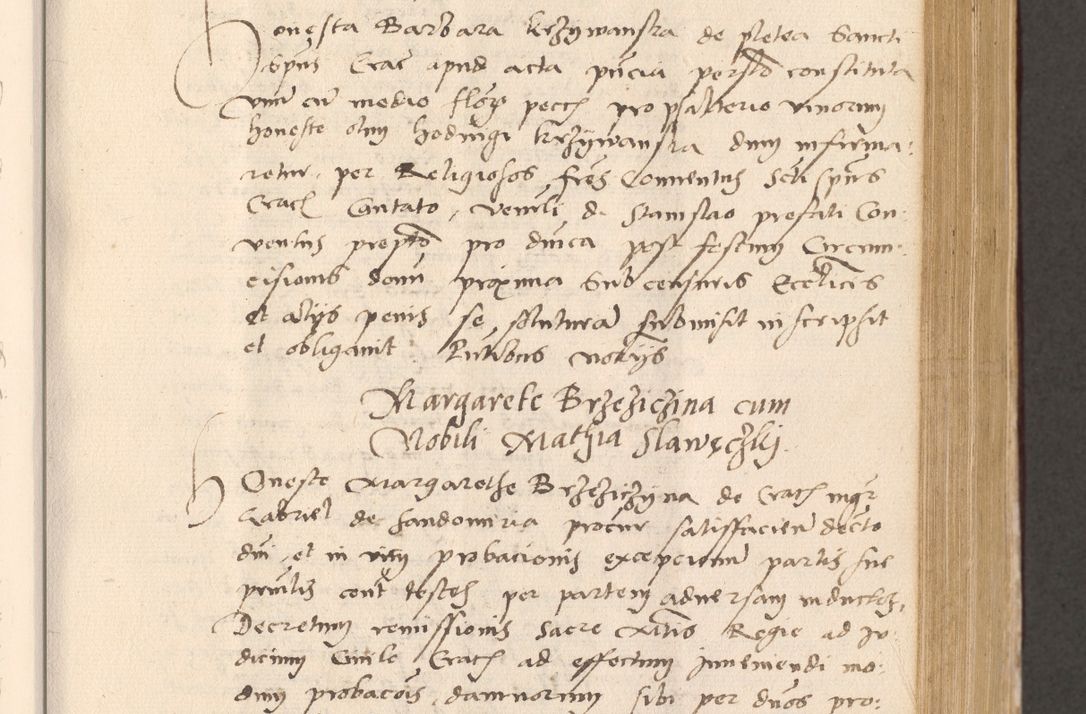 Honesta Barbara krzywanska de platea Sancti
Spūs Crac apud acta pncia personalr constituta
vnū cū medio florz pecc pro psalterio vinorum
honeste olim hedwigi krzywanska dum infirma:
retur, per Religiosos fres Conuentus Scti Spūs
Crac Cantato, Venerli d. Stanislao prefati Con:
ventus preptō pro dnica post festum Circum:
cisionis domi proxima Sub censuris Ecclicis
et alijs penis se soluturā submisit inscripsit
et obligauit Pntibus notijs
Margarete Brzezichina cum
Nobili Mathia Slawęczkij.
Honeste Margarethe Brzezichyna de Crac mgr
Gabriel de Sandomiria procur satisfacien decto
dni, et in vim probacionis excepcionū partis sue
pruilis contr testes per partem aduersam inductos,
Decretum remissionis Sacre Mtis Regie ad Ju:
dicium Ciuile Crac ad effectum inueniendi mo:
dum probacois damnorum sibi per duos pro: